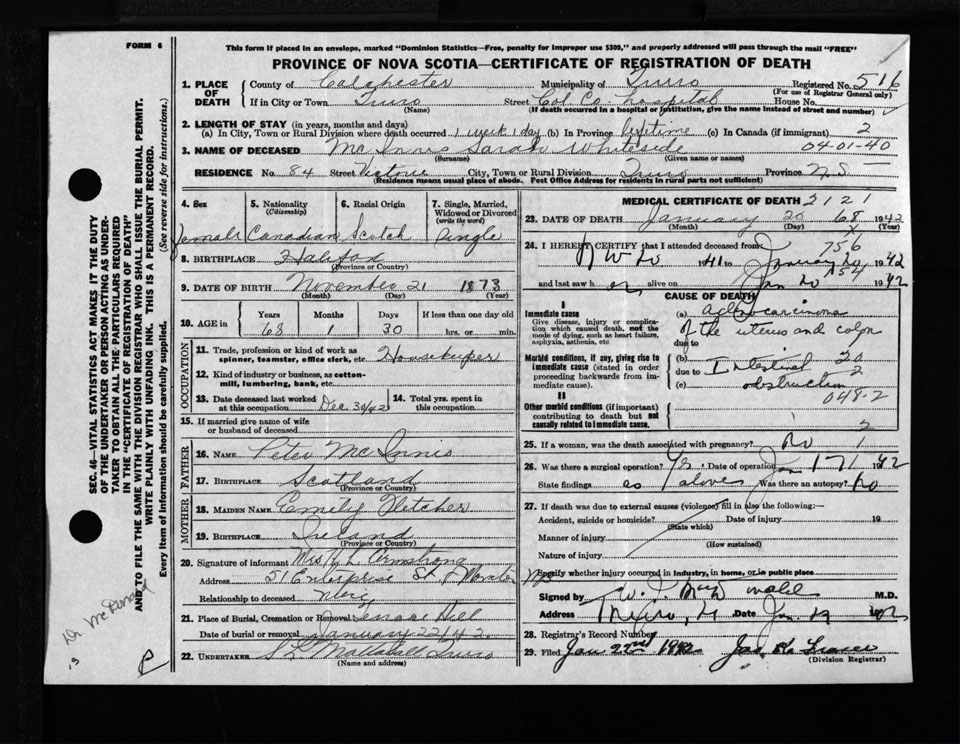 FORM 6
This form if placed in an envelope, marked "Dominion Statistics—Free, penalty for improper use $300," and properly addressed will pass through the mail "FREE"
PROVINCE OF NOVA SCOTIA—CERTIFICATE OF REGISTRATION OF DEATH
1. PLACE OF DEATH County of Colchester Municipality of Truro Registered No. 516
(For use of Registrar General only)
If in City or Town Truro Street Col. Co. Hospital House No.
(Name) (If death occurred in a hospital or institution, give the name instead of street and number)
2. LENGTH OF STAY (in years, months and days)
(a) In City, Town or Rural Division where death occurred 1 week 1 day (b) In Province lifetime (c) In Canada (if immigrant) 2
3. NAME OF DECEASED Mc Innis Sarah Whiteside 04-01-40
(Surname) (Given name or names)
RESIDENCE No. 84 Street Victoria City, Town or Rural Division Truro Province N.S.
(Residence means usual place of abode. Post Office Address for residents in rural parts not sufficient)
4. Sex Female
5. Nationality (Citizenship) Canadian
6. Racial Origin Scotch
7. Single, Married, Widowed or Divorced (write the word) Single
8. BIRTHPLACE Halifax
(Province or Country)
9. DATE OF BIRTH November 21 1873
(Month) (Day) (Year)
10. AGE in Years Months Days If less than one day old
68 1 30 hrs. or min.
OCCUPATION
11. Trade, profession or kind of work as spinner, teamster, office clerk, etc Housekeeper
12. Kind of industry or business, as cotton-mill, lumbering, bank, etc.
13. Date deceased last worked at this occupation Dec. 30/42
14. Total yrs. spent in this occupation
15. If married give name of wife or husband of deceased
FATHER
16. NAME Peter Mc Innis
17. BIRTHPLACE Scotland
(Province or Country)
MOTHER
18. MAIDEN NAME Emely Fletcher
19. BIRTHPLACE Ireland
(Province or Country)
20. Signature of informant Mrs L. Armstrong
Address 51 Enterprise St Moncton
Relationship to deceased
21. Place of Burial, Cremation or Removal Hill
Date of burial or removal January 22/42
22. UNDERTAKER Mattatall Truro
(Name and address)
MEDICAL CERTIFICATE OF DEATH 2121
23. DATE OF DEATH January 20 68 1942
(Month) (Day) (Year)
24. I HEREBY CERTIFY that I attended deceased from: 756
1941 to January 20 1942
154
and last saw her alive on Jan 20 1942
CAUSE OF DEATH
I
Immediate cause
Give disease, injury or complication which caused death, not the mode of dying, such as heart failure, asphyxia, asthenia, etc
(a) adenocarcinoma
of the uterus and colon
due to
Morbid conditions, if any, giving rise to immediate cause (stated in order proceeding backwards from immediate cause).
(b) 20
due to Intestinal 2
(c) obstruction
048-2
II
Other morbid conditions (if important) contributing to death but not causally related to immediate cause.
2
25. If a woman, was the death associated with pregnancy? no 1
26. Was there a surgical operation? Yes Date of operation Jan 17 1942
State findings as above Was there an autopsy? no
27. If death was due to external causes (violence) fill in also the following:—
Accident, suicide or homicide? Date of injury 19
(State which)
Manner of injury
(How sustained)
Nature of injury
Specify whether injury occurred in industry, in home, or in public place
Signed by M.D.
Address Truro, Date Jan
28. Registrar's Record Number
29. Filed Jan 22nd 1942 Jas
(Division Registrar)
SEC. 46—VITAL STATISTICS ACT MAKES IT THE DUTY
OF THE UNDERTAKER OR PERSON ACTING AS UNDER-
TAKER TO OBTAIN ALL THE PARTICULARS REQUIRED
IN THE "CERTIFICATE OF REGISTRATION OF DEATH"
AND TO FILE THE SAME WITH THE DIVISION REGISTRAR WHO SHALL ISSUE THE BURIAL PERMIT.
WRITE PLAINLY WITH UNFADING INK. THIS IS A PERMANENT RECORD.
Every item of information should be carefully supplied. (See reverse side for instructions.)
Dr McDonald
P